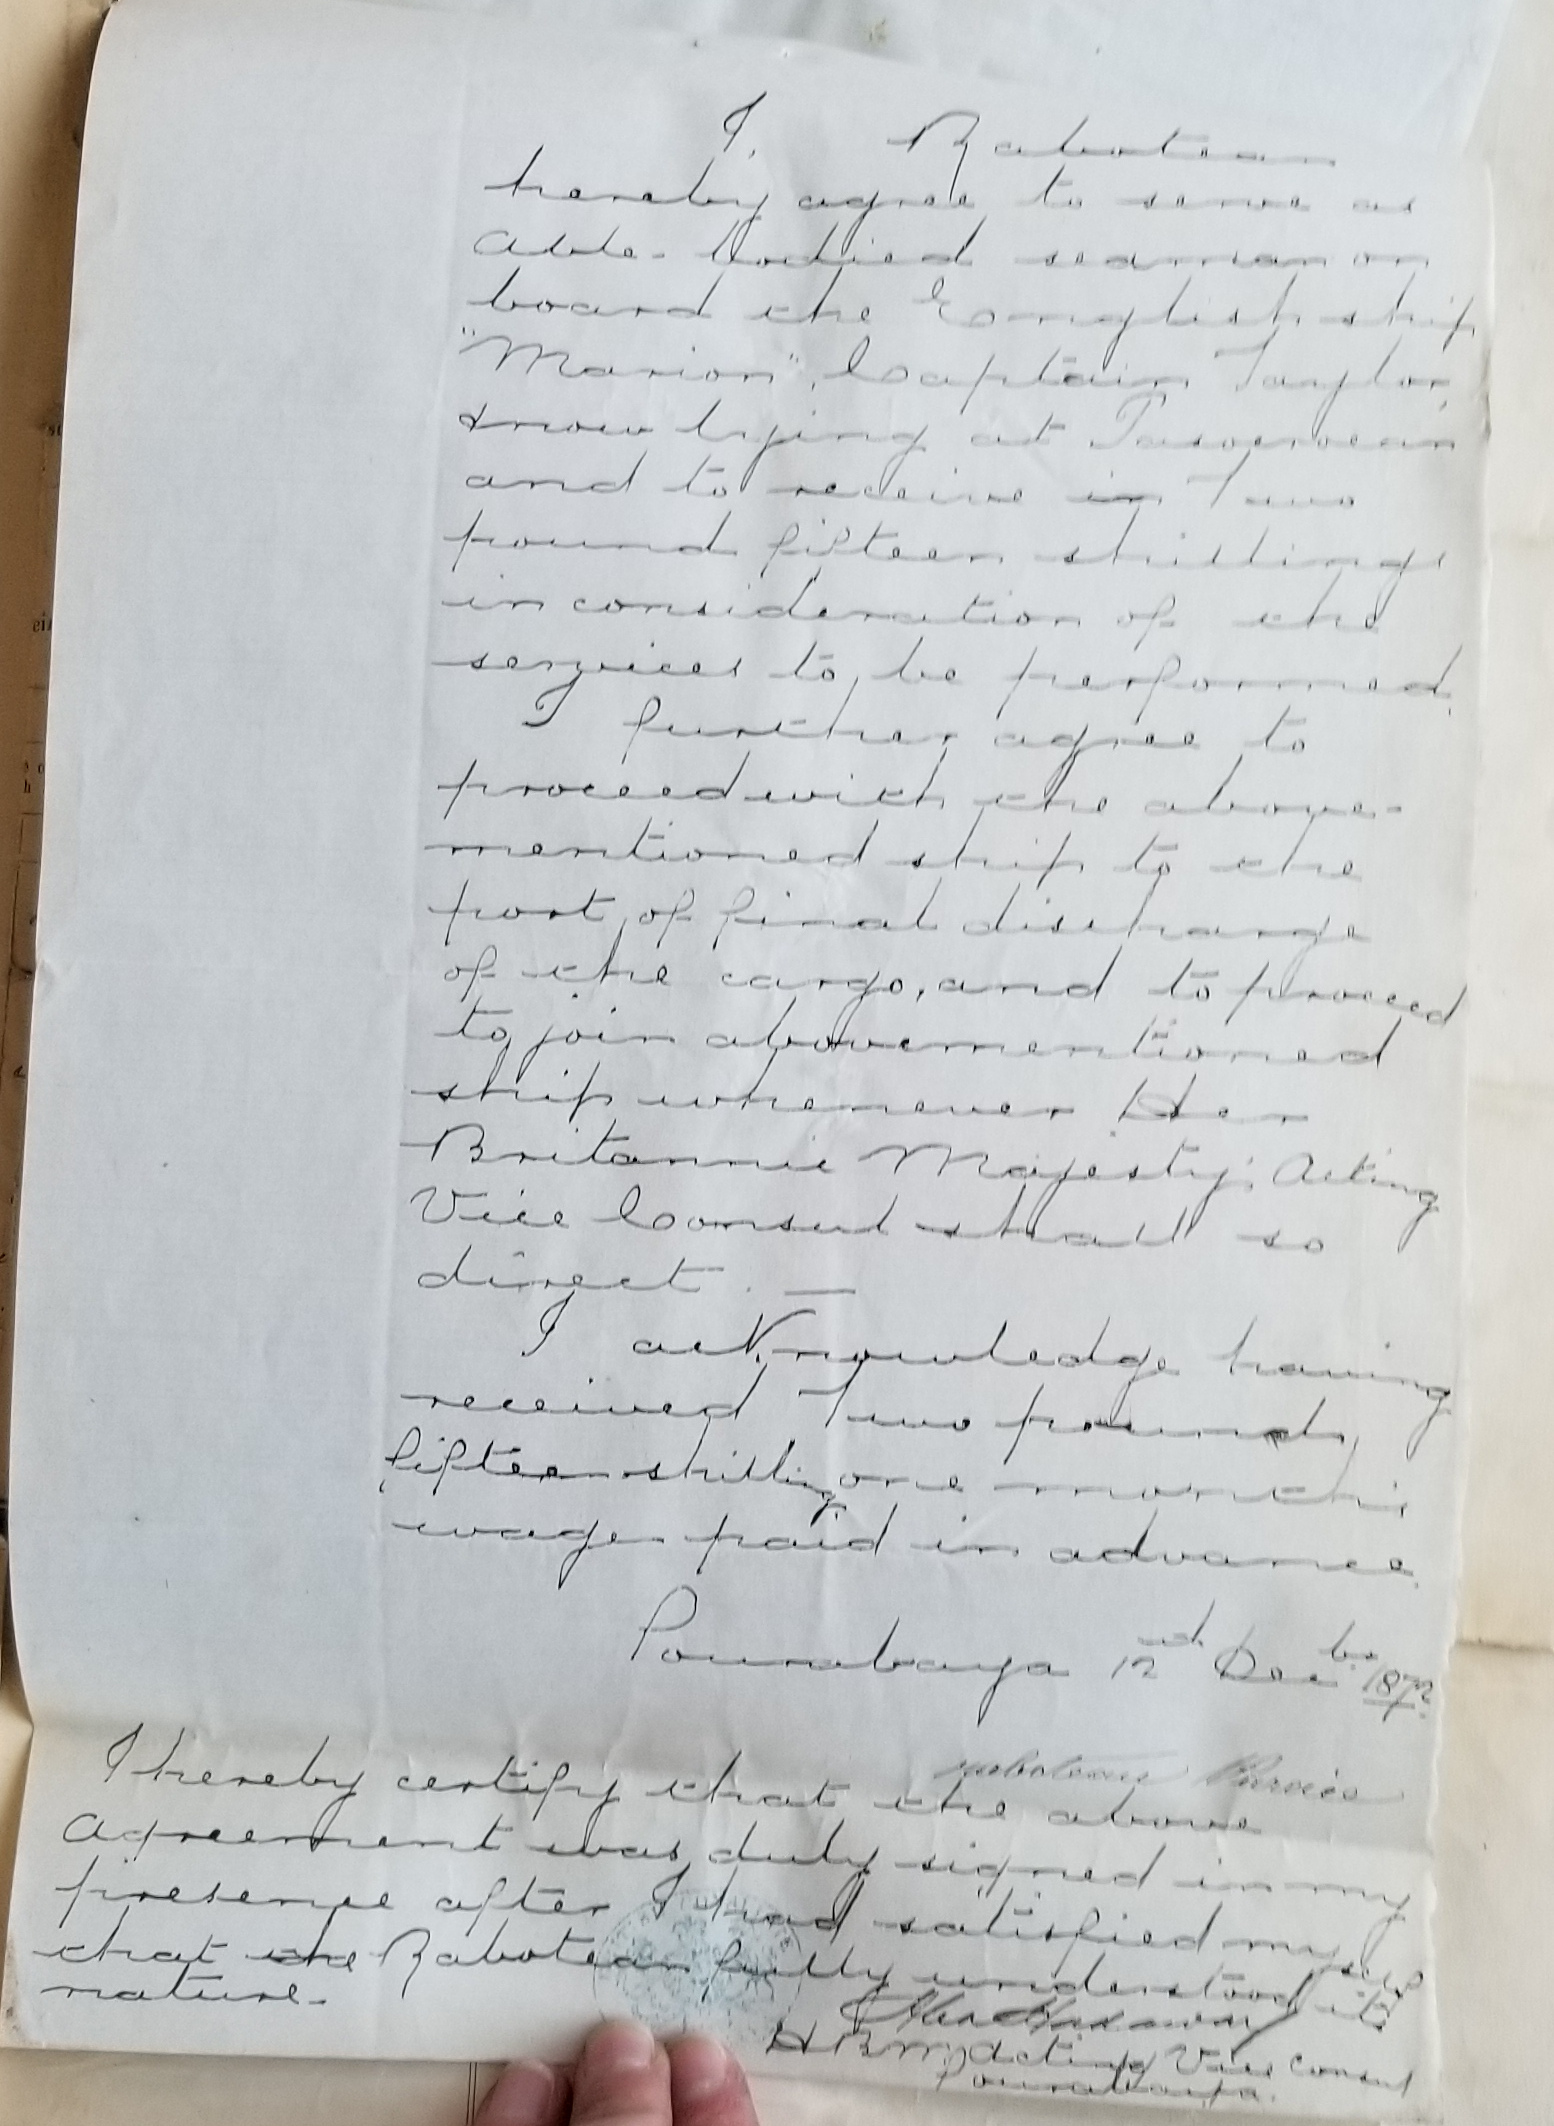 I, Rabotean
hereby agree to serve as
able-bodied seaman on
board the English ship
"Marion", Captain Taylor,
now lying at Pasoeroean
and to receive in Two
pound fifteen shillings
in consideration of the
services to be performed.
I further agree to
proceed with the above-
mentioned ship to the
port of final discharge
of the cargo, and to proceed
to join abovementioned
ship whenever Her
Britannic Majesty's Acting
Vice Consul shall so
direct. —
I acknowledge having
received Two pounds,
fifteen shillings one month's
wages paid in advance.
Sourabaya 12th Decbr 1872.
I hereby certify that the above
agreement was duly signed in my
presence after I had satisfied myself
that the Rabotean fully understood its
nature.
H B M Acting Vice Consul
Sourabaya.